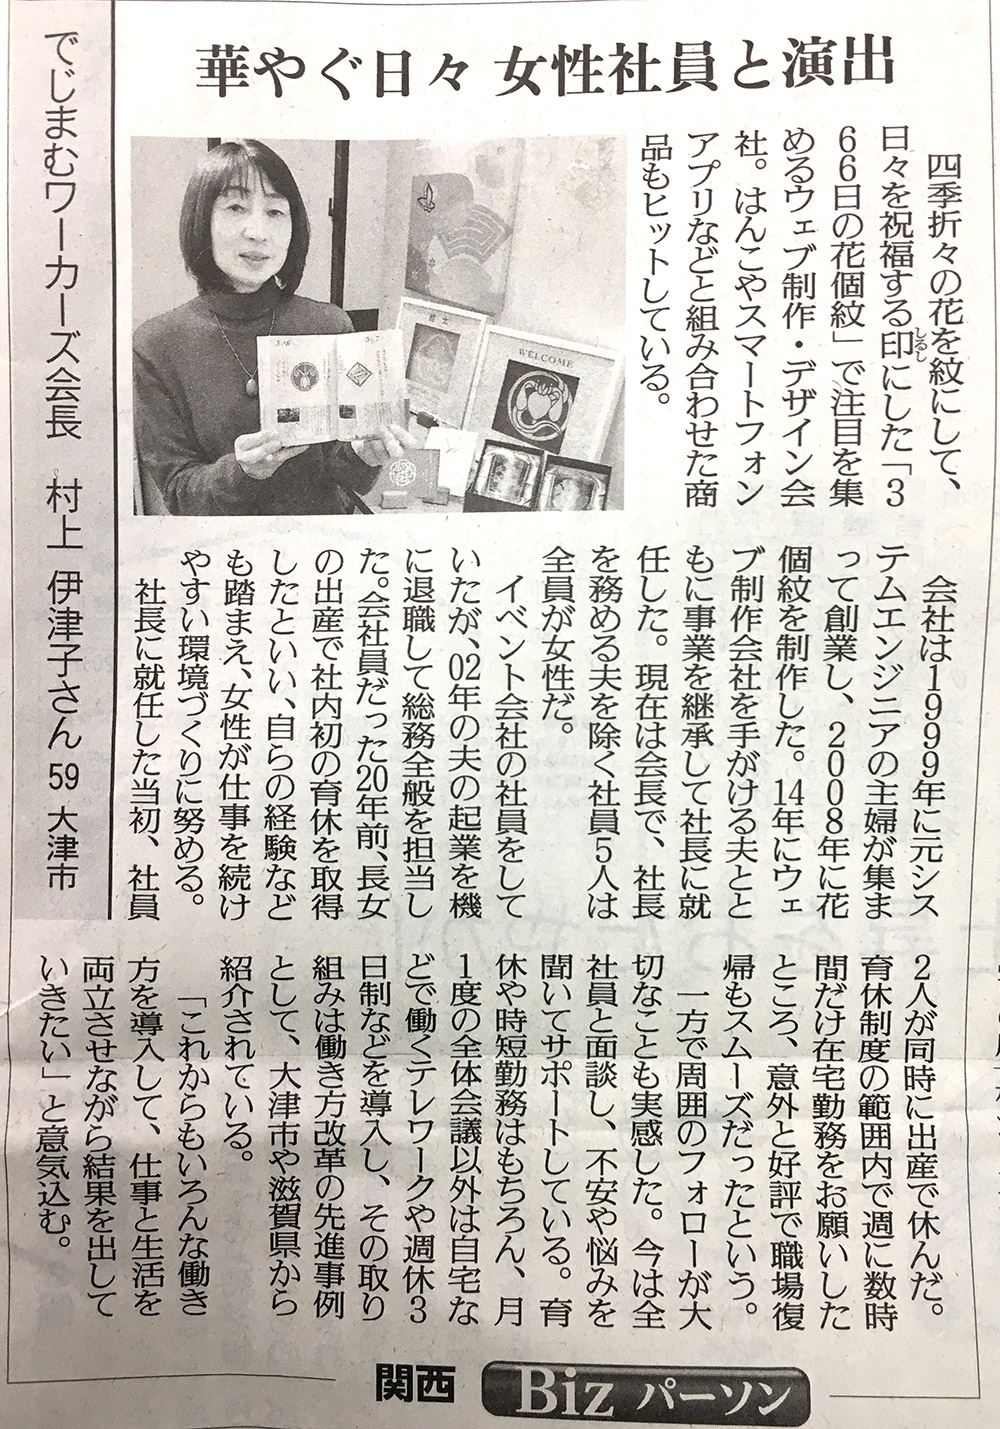 華やぐ日々 女性社員と演出
でじまむワーカーズ会長 村上 伊津子さん 59 大津市
で
四季折々の花を紋にして、
日々を祝福する印にした「3
しるし
66日の花個紋」で注目を集
めるウェブ制作・デザイン会
社。はんこやスマートフォン
アプリなどと組み合わせた商
品もヒットしている。
WELCOME
会社は1999年に元シス
テムエンジニアの主婦が集ま
って創業し、2008年に花
個紋を制作した。14年にウェ
ブ制作会社を手がける夫とと
もに事業を継承して社長に就
任した。現在は会長で、社長
を務める夫を除く社員5人は
全員が女性だ。
イベント会社の社員をして
いたが、02年の夫の起業を機
に退職して総務全般を担当し
た。会社員だった20年前、長女
の出産で社内初の育休を取得
したといい、自らの経験など
も踏まえ、女性が仕事を続け
やすい環境づくりに努める。
社長に就任した当初、社員
2人が同時に出産で休んだ。
育休制度の範囲内で週に数時
間だけ在宅勤務をお願いした
ところ、意外と好評で職場復
帰もスムーズだったという。
一方で周囲のフォローが大
切なことも実感した。今は全
社員と面談し、不安や悩みを
聞いてサポートしている。育
休や時短勤務はもちろん、月
1度の全体会議以外は自宅な
どで働くテレワークや週休3
日制などを導入し、その取り
組みは働き方改革の先進事例
として、大津市や滋賀県から
紹介されている。
「これからもいろんな働き
方を導入して、仕事と生活を
両立させながら結果を出して
いきたい」と意気込む。
関西 Biz パーソン